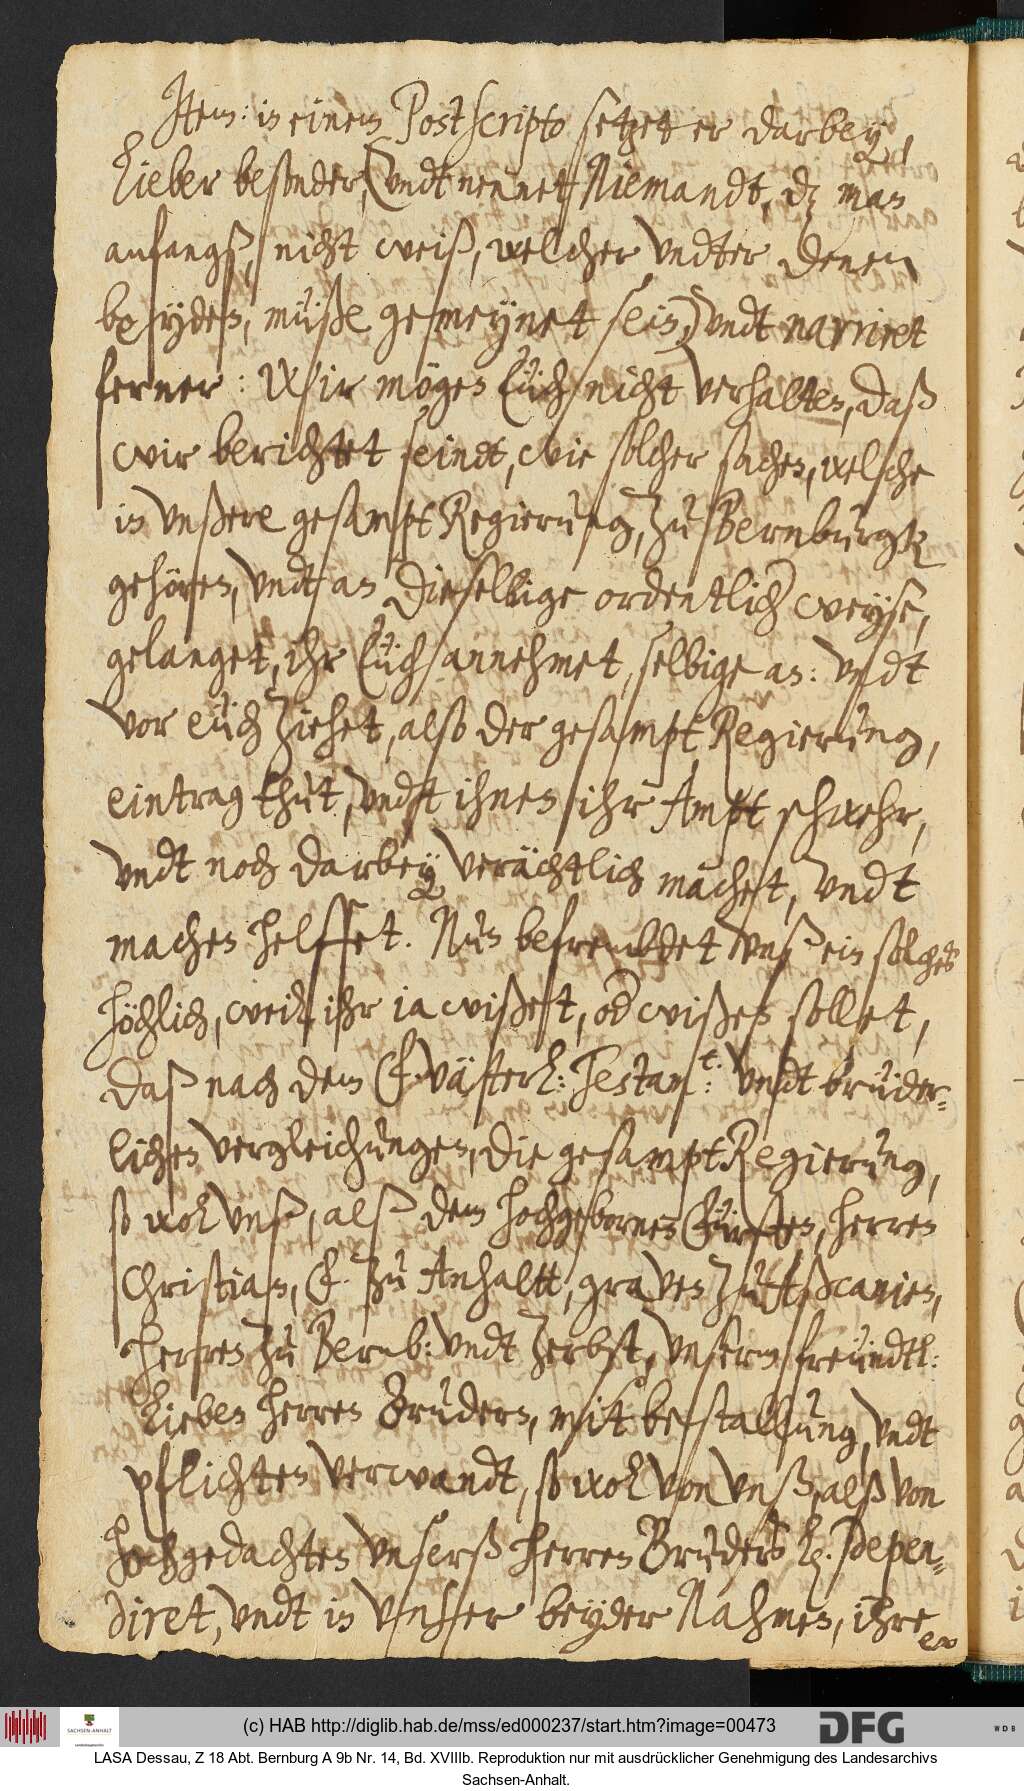 Item: in einem Postscripto setzet er darbey,
Lieber besonder, (undt nennet Niemandt, dz man
anfangß, nicht weiß, welcher undter denen
beyden, müße gemeynet sein,) undt narriret
ferner: Wir mögen Euch nicht verhalten, daß
wir berichtet seindt, wie solcher sachen, welche
in unßere gesampt Regierung, zu Bernburgk
gehören, undt an dieselbige ordentlich weyse,
gelanget, ihr Euch annehmet, selbige an: undt
vor euch ziehet, also der gesampt Regierung,
eintrag thut, undt ihnen ihr Ampt schwehr,
undt noch darbey verächtlich machet, undt
machen helffet. Nun befrembdet unß ein solches
höchlich, weil, ihr ia wißet, od wißen sollet,
daß nach dem F. väterl: Testamt: undt brüder-
lichen vergleichungen, die gesampt Regierung,
so wol unß, alß dem hochgebornen Fürsten, herren
Christian, F. zu Anhaltt, graven zu Aßcanien,
herren zu Bernb: undt Zerbst, unserm freundtl:
Lieben herren Brudern, mit bestallung, undt
pflichten verwandt, so wol von unß, alß von
hochgedachten unserß herren Bruders L. depen-
diret, undt in unser beyder Nahmen, ihre
(c) HAB http://diglib.hab.de/mss/ed000237/start.htm?image=00473
SACHSEN-ANHALT
DFG
WDB
LASA Dessau, Z 18 Abt. Bernburg A 9b Nr. 14, Bd. XVIIIb. Reproduktion nur mit ausdrücklicher Genehmigung des Landesarchivs
Sachsen-Anhalt.